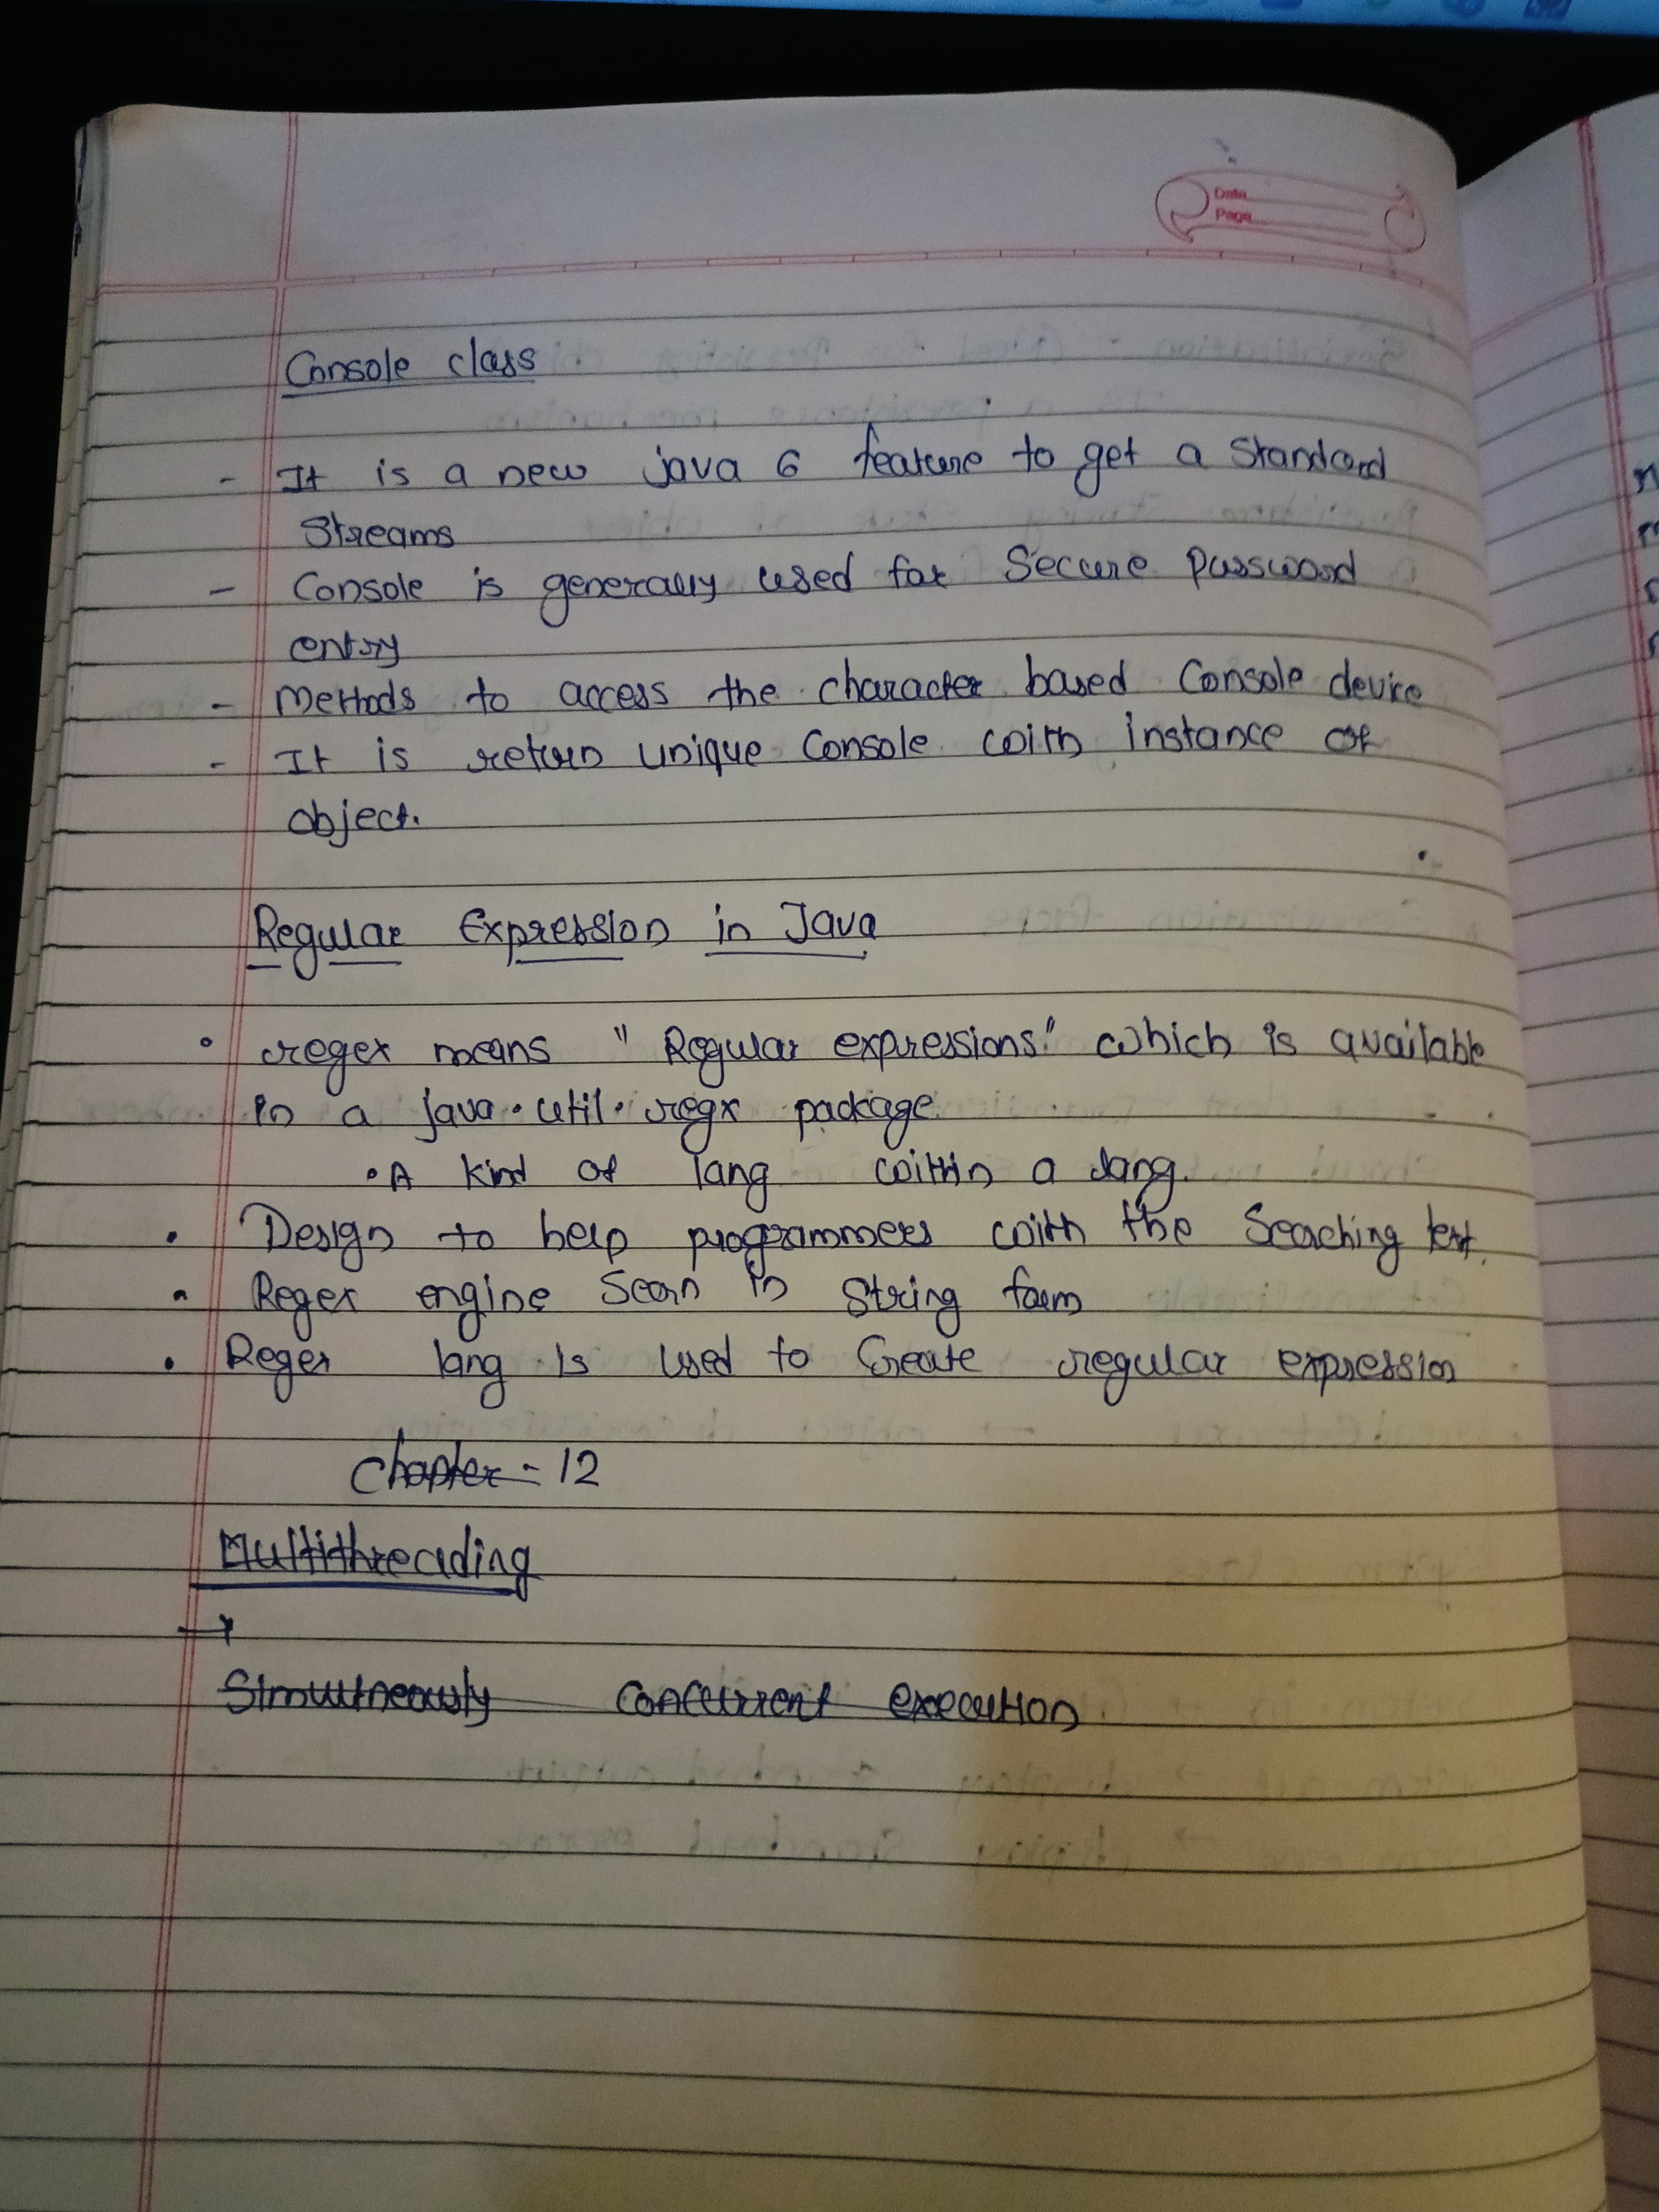 Date
Page
Console class
- It is a new java 6 feature to get a standard
streams
- Console is generally used for secure password
entry
- Methods to access the character based Console device
- It is return unique console with instance of
object.
Regular Expression in Java
• regex means " Regular expressions." which is available
in a java.util.regx package.
• A kind of lang within a lang.
• Design to help programmers with the searching text.
• Regex engine scan in string form
• Regex lang is used to Create regular expression
Chapter - 12
Multithreading
→
Simultneously concurrent execution